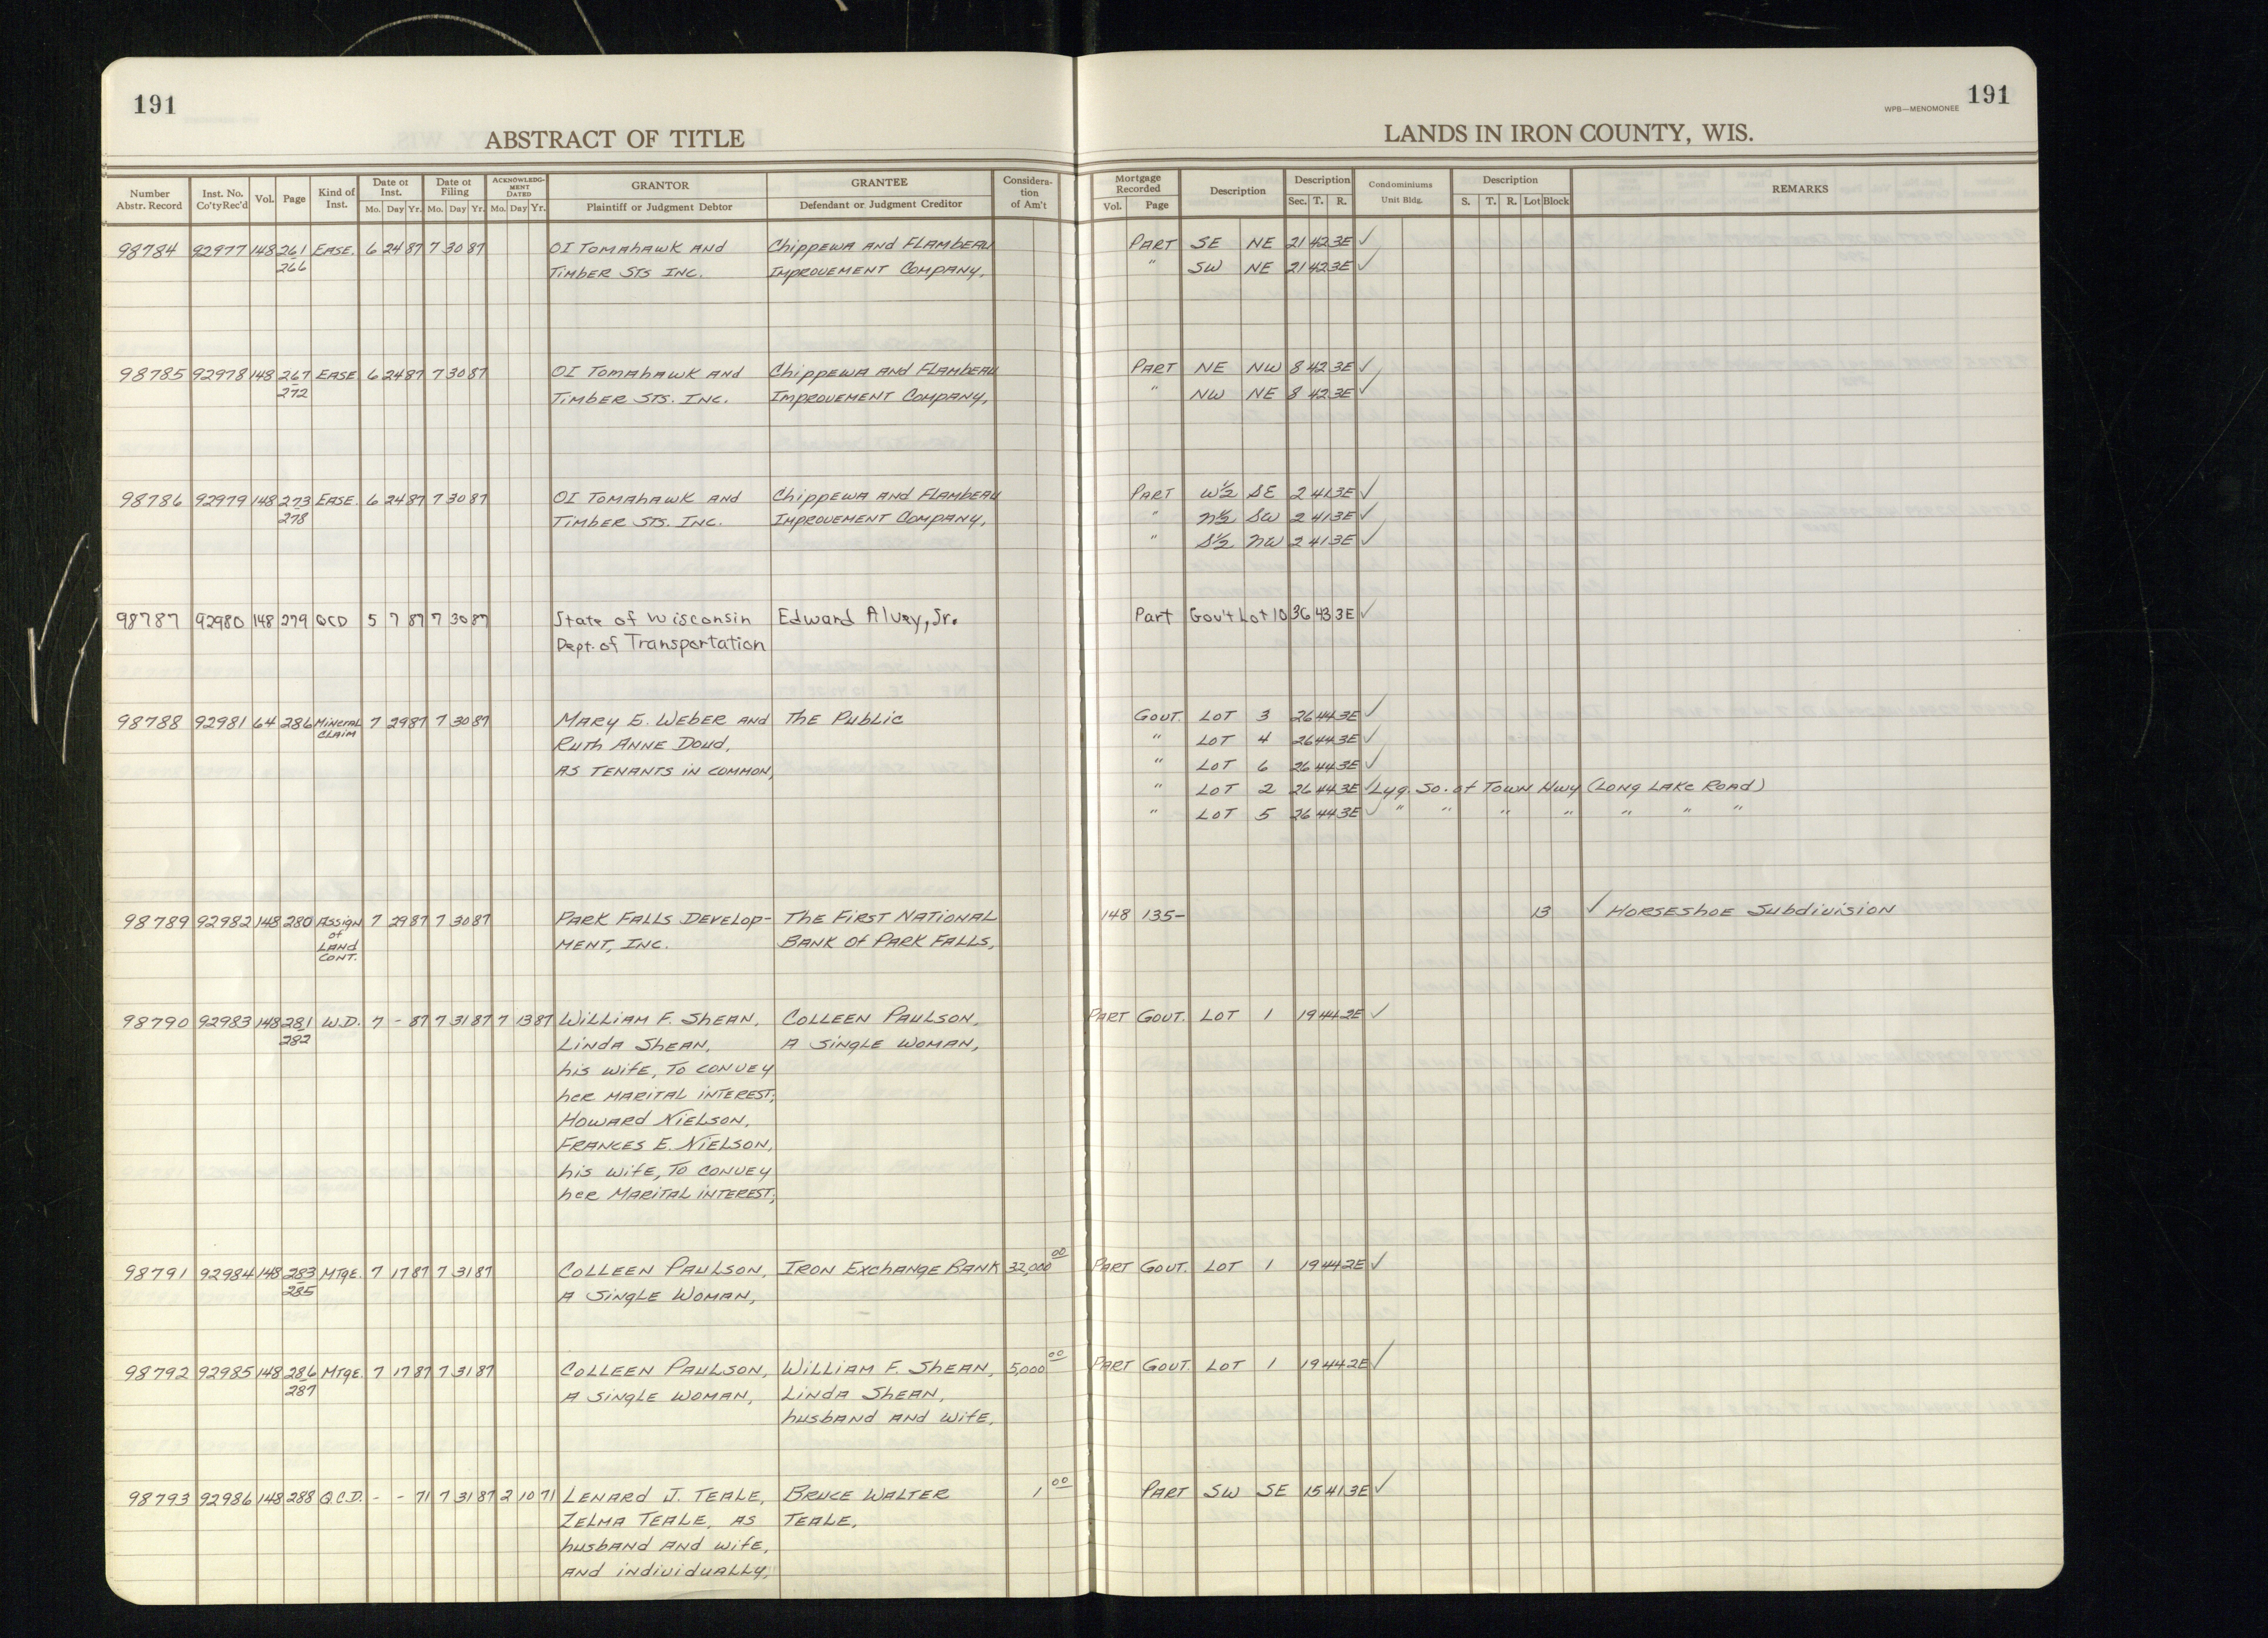 191
191
WPB—MENOMONEE
ABSTRACT OF TITLE
LANDS IN IRON COUNTY, WIS.
Number Abstr. Record | Inst. No. Co'ty Rec'd | Vol. | Page | Kind of Inst. | Date of Inst. Mo. Day Yr. | Date of Filing Mo. Day Yr. | ACKNOWLEDGMENT DATED Mo. Day Yr. | GRANTOR Plaintiff or Judgment Debtor | GRANTEE Defendant or Judgment Creditor | Consideration of Am't | Mortgage Recorded Vol. Page | Description | Description Sec. T. R. | Condominiums Unit Bldg. | Description S. T. R. Lot Block | REMARKS
98784 92977 148 261 EASE. 6 24 87 7 30 87 OI TOMAHAWK AND Chippewa AND FLAMBEAU PART SE NE 21 42 3E ✓
266 TIMBER STS INC. IMPROVEMENT COMPANY, " SW NE 21 42 3E ✓
98785 92978 148 267 EASE 6 24 87 7 30 87 OI TOMAHAWK AND Chippewa AND FLAMBEAU PART NE NW 8 42 3E ✓
272 TIMBER STS. INC. IMPROVEMENT COMPANY, " NW NE 8 42 3E ✓
98786 92979 148 273 EASE. 6 24 87 7 30 87 OI TOMAHAWK AND Chippewa AND FLAMBEAU PART W½ SE 2 41 3E ✓
278 TIMBER STS. INC. IMPROVEMENT COMPANY, " N½ SW 2 41 3E ✓
" S½ NW 2 41 3E ✓
98787 92980 148 279 QCD 5 7 87 7 30 87 State of Wisconsin Edward Alvey, Sr. Part Gov't Lot 10 36 43 3E ✓
Dept. of Transportation
98788 92981 64 286 Mineral 7 29 87 7 30 87 MARY E. WEBER AND THE Public GOVT. LOT 3 26 44 3E ✓
CLAIM RUTH ANNE DOUD, " LOT 4 26 44 3E ✓
AS TENANTS IN COMMON, " LOT 6 26 44 3E ✓
" LOT 2 26 44 3E ✓ Lyg. So. of TOWN Hwy (LONG LAKE ROAD)
" LOT 5 26 44 3E ✓ " " " " " " "
98789 92982 148 280 Assign 7 29 87 7 30 87 PARK FALLS DEVELOP- THE FIRST NATIONAL 148 135- 13 ✓ HORSESHOE Subdivision
of MENT, INC. BANK OF PARK FALLS,
LAND
CONT.
98790 92983 148 281 W.D. 7 - 87 7 31 87 7 13 87 WILLIAM F. SHEAN, COLLEEN PAULSON, PART GOVT. LOT 1 19 44 2E ✓
282 LINDA SHEAN, A SINGLE WOMAN,
his wife, TO CONVEY
her MARITAL INTEREST;
HOWARD NIELSON,
FRANCES E. NIELSON,
his wife, TO CONVEY
her MARITAL INTEREST;
98791 92984 148 283 MTGE. 7 17 87 7 31 87 COLLEEN PAULSON, IRON EXCHANGE BANK 32,000 00 PART GOVT. LOT 1 19 44 2E ✓
285 A SINGLE WOMAN,
98792 92985 148 286 MTGE. 7 17 87 7 31 87 COLLEEN PAULSON, WILLIAM F. SHEAN, 5,000 00 PART GOVT. LOT 1 19 44 2E ✓
287 A SINGLE WOMAN, LINDA SHEAN,
husband AND wife,
98793 92986 148 288 Q.C.D. - - 71 7 31 87 2 10 71 LENARD J. TEALE, BRUCE WALTER 1 00 PART SW SE 15 41 3E ✓
ZELMA TEALE, AS TEALE,
husband AND wife,
AND individually,